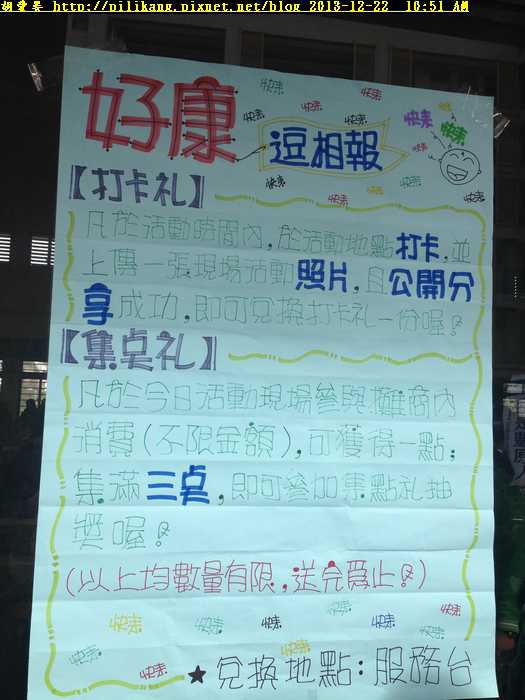 胡噹某 http://pilikang.pixnet.net/blog 2013-12-22 10:51 AM
好康
逗相報
快來 快來 快來 快來 快來 快來 快來
快來 快來 快來 快來 快來 快來
【打卡礼】
凡於活動時間內,於活動地點打卡,並
上傳一張現場活動照片,且公開分
享成功,即可兌換打卡礼一份喔!
【集点礼】
凡於今日活動現場參與攤商內
消費(不限金額),可獲得一點;
集滿三点,即可參加集點礼抽
獎喔!
(以上均數量有限,送完為止!)
快來 快來 快來 快來 快來
快來 快來 快來 快來 快來
★兌換地點:服務台